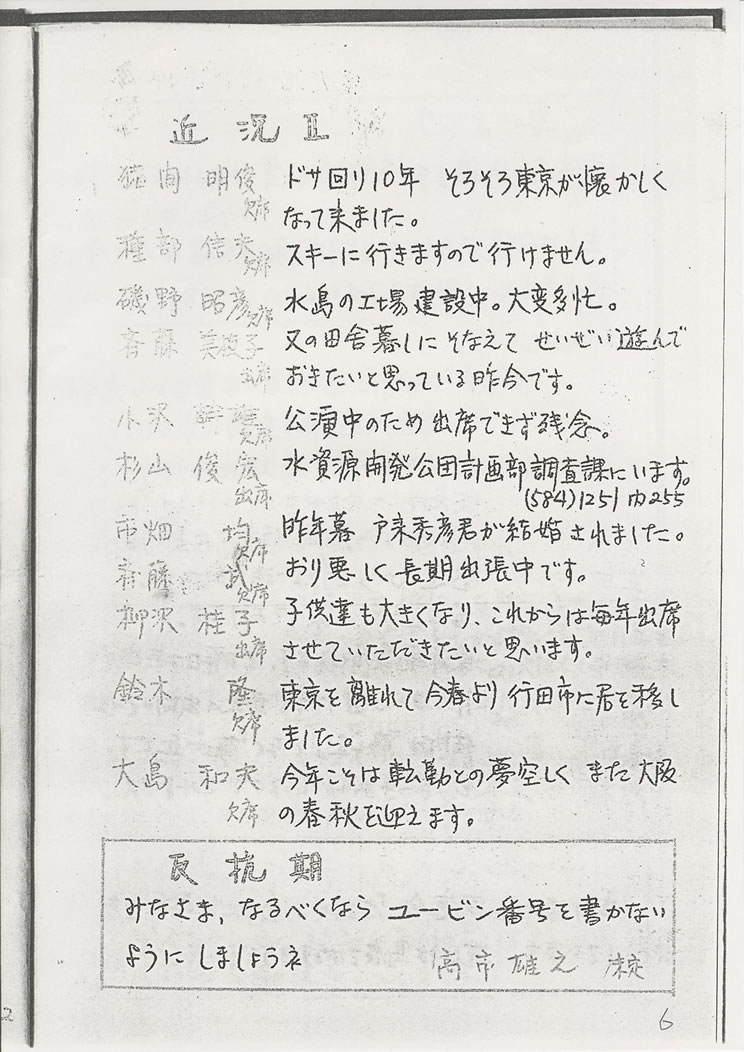 近況Ⅱ
猿間 明俊 欠席 ドサ回り10年 そろそろ東京が懐かしく
なって来ました。
種部 信夫 欠席 スキーに行きますので行けません。
磯野 昭彦 欠席 水島の工場建設中。大変多忙。
斉藤 美波子 出席 又の田舎暮しにそなえて せいぜい遊んで
おきたいと思っている昨今です。
小沢 欠席 公演中のため出席できず残念。
杉山 俊宏 出席 水資源開発公団計画部調査課にいます。
(584)1251 内255
市畑 均 欠席 昨年暮 戸来秀彦君が結婚されました。
斉藤 武 欠席 おり悪しく長期出張中です。
柳沢 桂子 出席 子供達も大きくなり、これからは毎年出席
させていただきたいと思います。
鈴木 隆 欠席 東京を離れて今春より行田市に居を移し
ました。
大島 和夫 欠席 今年こそは転勤との夢空しく また大阪
の春秋を迎えます。
反抗期
みなさま, なるべくなら ユービン番号を書かない
ように しましょうネ 高市雄之
6
2